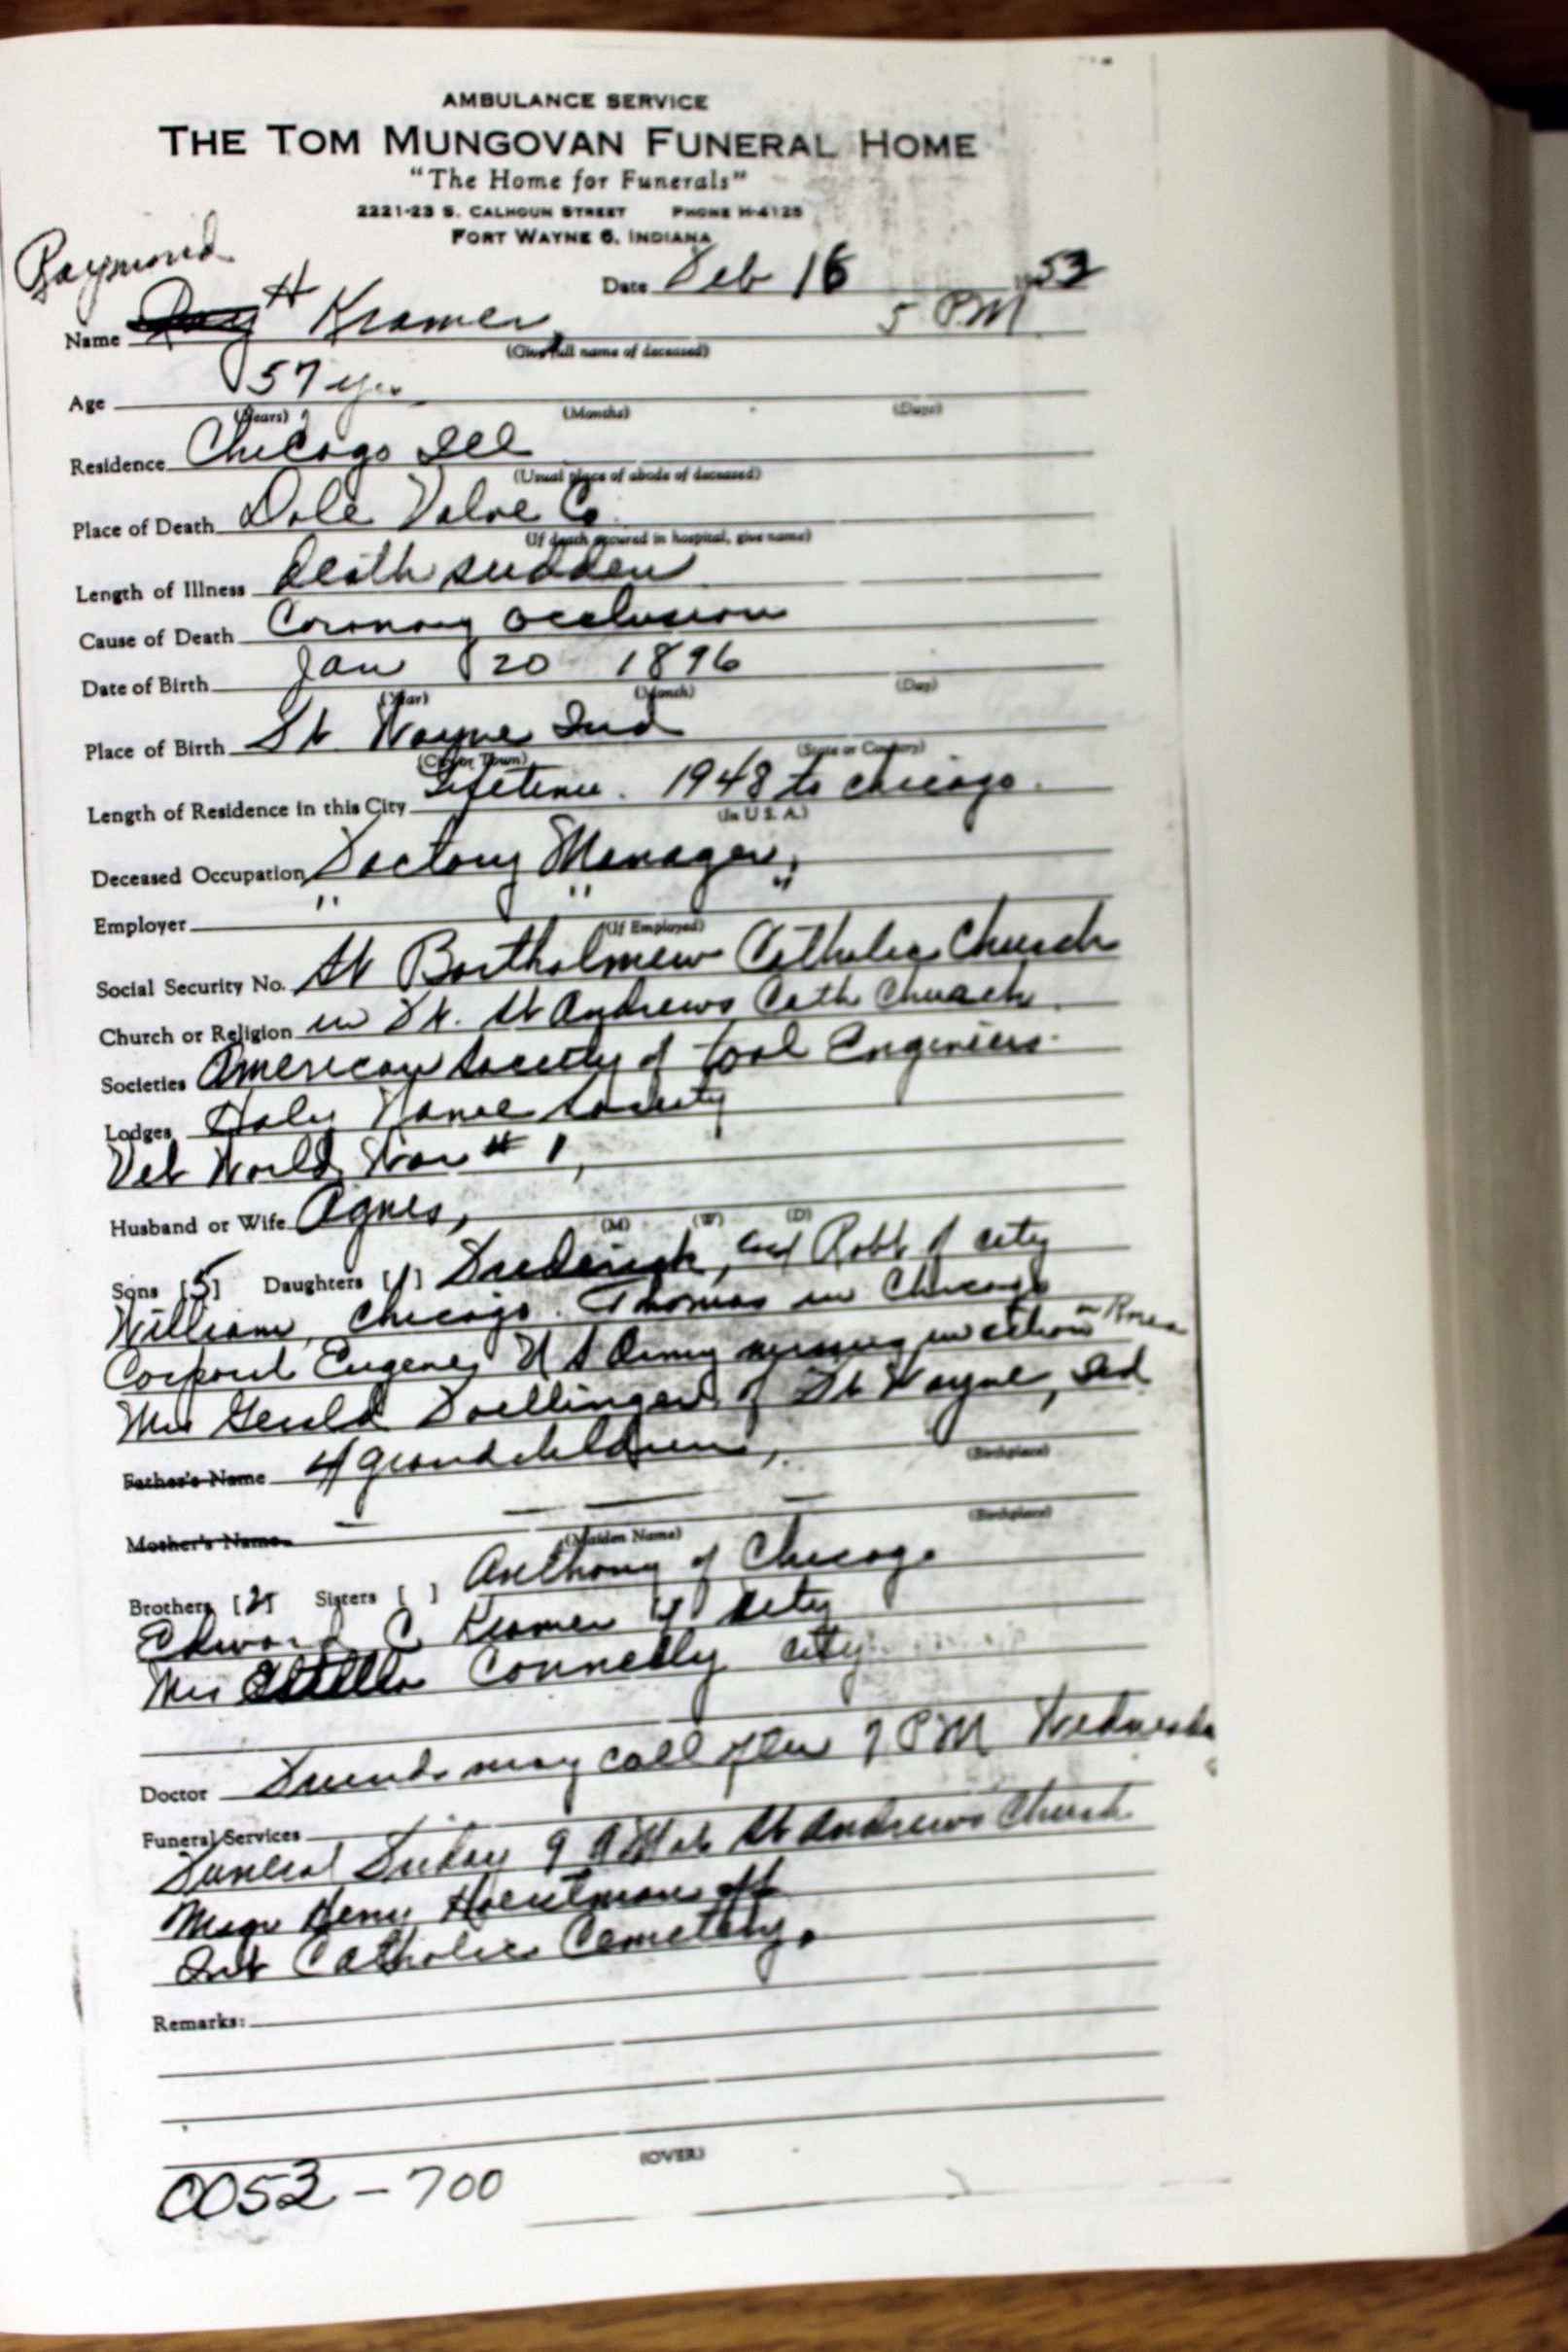 AMBULANCE SERVICE
THE TOM MUNGOVAN FUNERAL HOME
"The Home for Funerals"
2221-23 S. CALHOUN STREET PHONE H-4125
FORT WAYNE 6, INDIANA
Raymond
Date Feb 16 1953
Name Ray H Kramer, 5 PM
(Give full name of deceased)
Age 57 yrs
(Years) (Months) (Days)
Residence Chicago Ill
(Usual place of abode of deceased)
Place of Death Dole Valve Co
(If death occured in hospital, give name)
Length of Illness Death sudden
Cause of Death Coronary Occlusion
Date of Birth Jan 20 1896
(Year) (Month) (Day)
Place of Birth Ft. Wayne Ind
(City or Town) (State or Country)
Length of Residence in this City Lifetime. 1948 to Chicago.
(In U. S. A.)
Deceased Occupation Factory Manager,
Employer " " "
(If Employed)
Social Security No. St Bartholmew Catholic Church
Church or Religion in Ft. St Andrews Cath Church.
Societies American Society of Tool Engineers.
Lodges Holy Name Society
Vet World War # 1,
Husband or Wife Agnes,
(M) (W) (D)
Sons [5] Daughters [1] Frederick, and Robt of city
William, Chicago. Thomas in Chicago
Corporal Eugene, U S Army missing in action in Korea
Mrs Gerald Doellinger of Ft Wayne, Ind
Father's Name 4 grandchildren,
(Birthplace)
Mother's Name
(Maiden Name) (Birthplace)
Brothers [2] Sisters [ ] Anthony of Chicago
Edward C Kramer of city
Mrs Stella Connelly city
Doctor Friends may call after 7 PM Wednesda
Funeral Services
Funeral Friday 9 AM at St Andrews Church
Msgr Henry Hoerstman off
Int Catholic Cemetery.
Remarks:
(OVER)
0053-700